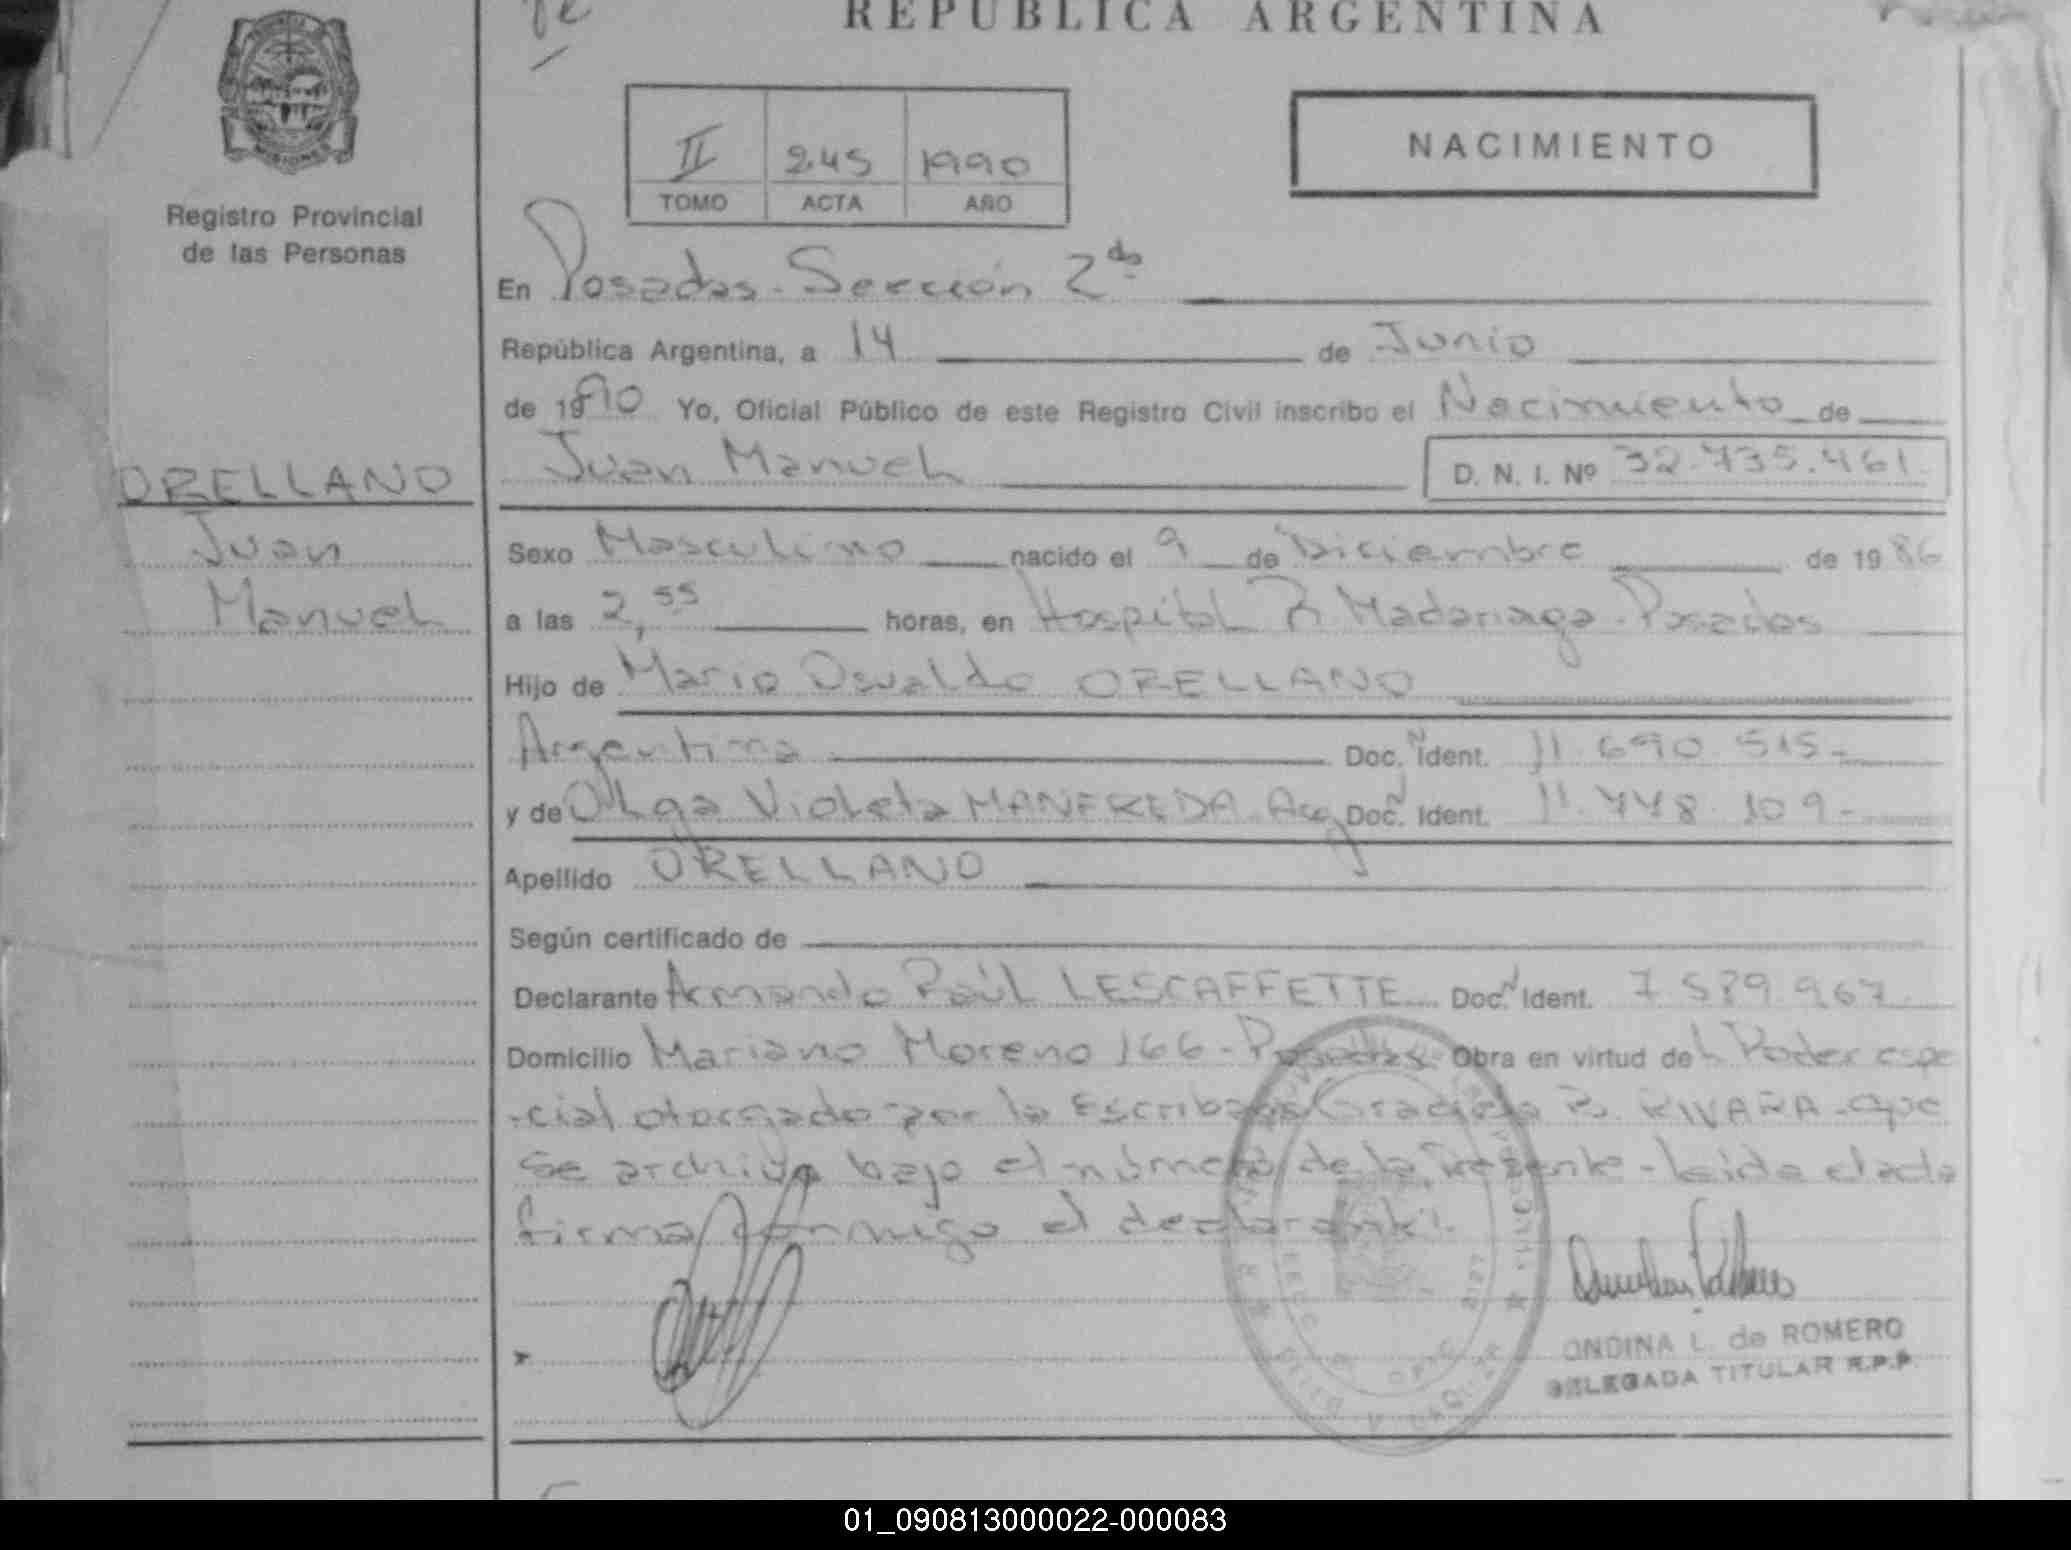 REPUBLICA ARGENTINA
NACIMIENTO
II 245 1990
TOMO ACTA AÑO
Registro Provincial
de las Personas
En Posadas - Sección 2da
República Argentina, a 14 de Junio
de 1990 Yo, Oficial Público de este Registro Civil inscribo el Nacimiento de
ORELLANO Juan Manuel D. N. I. Nº 32.735.461
Juan Sexo Masculino nacido el 9 de Diciembre de 1986
Manuel a las 2,55 horas, en Hospital R Madariaga - Posadas
Hijo de Mario Osvaldo ORELLANO
Argentina Doc. N Ident. 11.690.515-
y de Olga Violeta MANFREDA. Arg Doc. N Ident. 11.778.109-
Apellido ORELLANO
Según certificado de
Declarante Armando Raúl LESCAFFETTE Doc. N Ident. 7.589.967
Domicilio Mariano Moreno 166 - Posadas. Obra en virtud del Poder espe
-cial otorgado por la Escribana Graciela B. RIVARA - que
se archiva bajo el número de la presente - Leída el acta
firma conmigo el declarante.
ONDINA L. de ROMERO
DELEGADA TITULAR R.P.P.
01_090813000022-000083